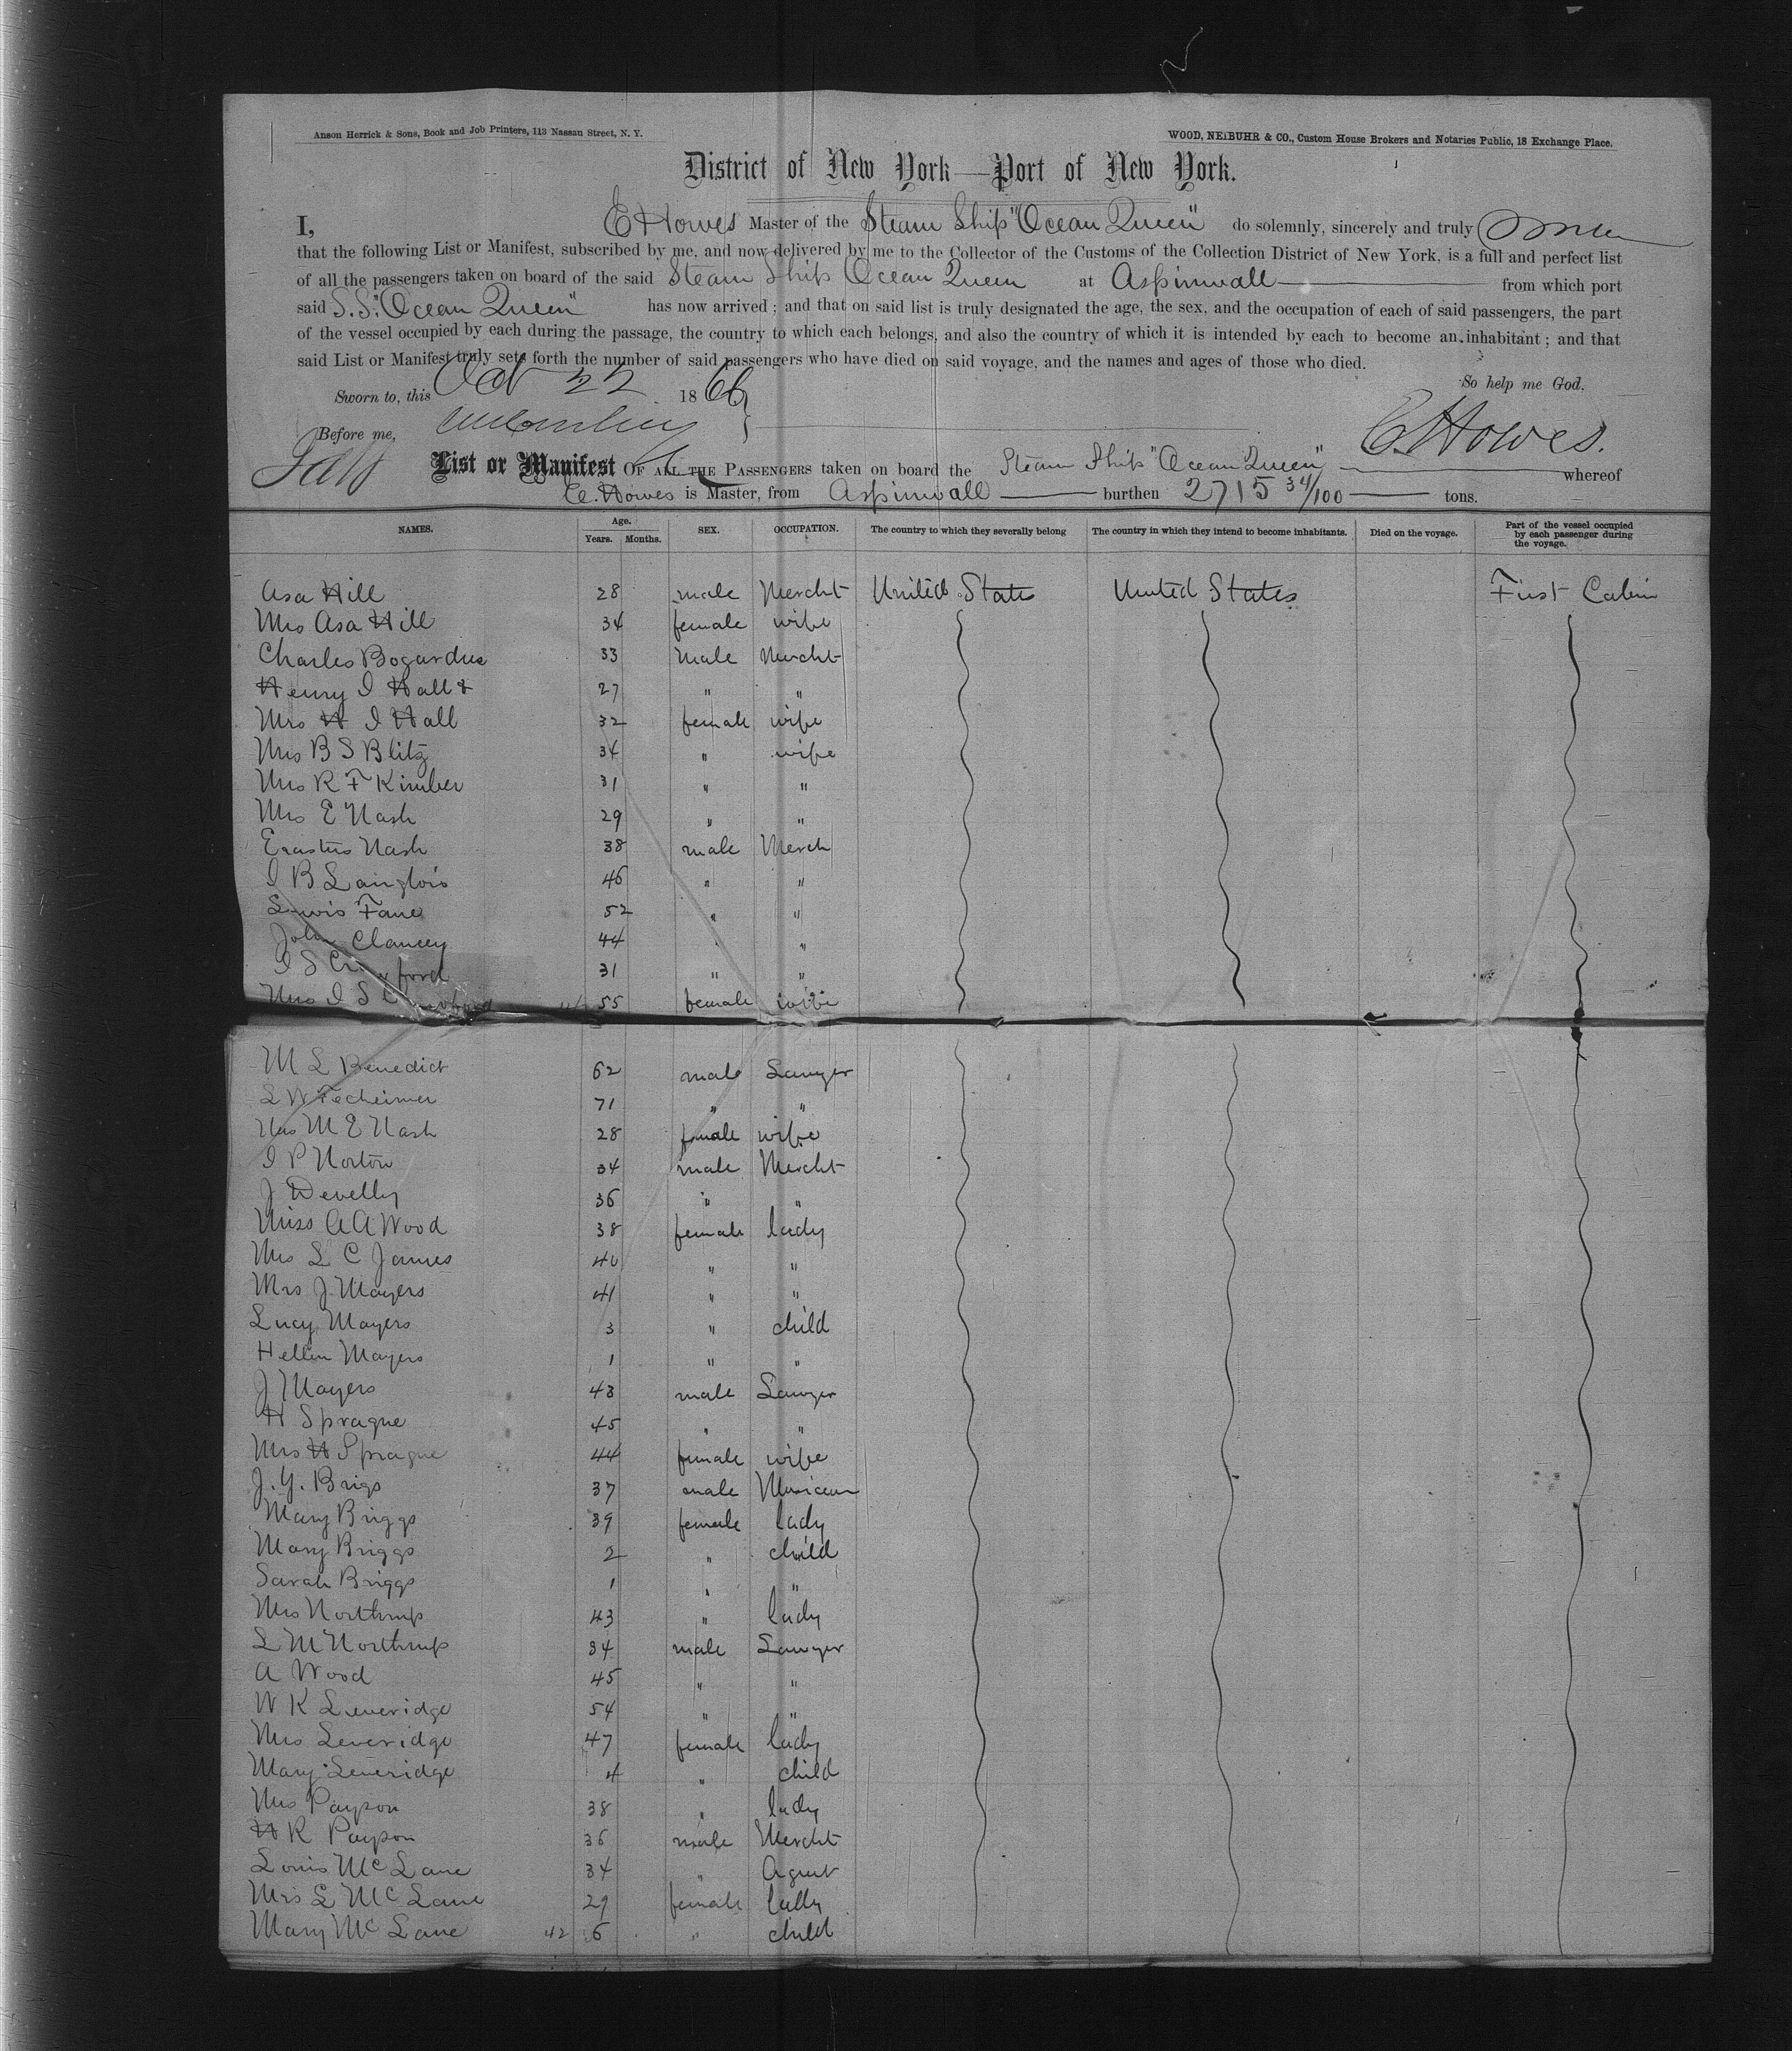 Anson Herrick & Sons, Book and Job Printers, 113 Nassau Street, N. Y.
WOOD, NEIBUHR & CO., Custom House Brokers and Notaries Public, 18 Exchange Place.
District of New York—Port of New York.
I, E Howes Master of the Steam Ship "Ocean Queen" do solemnly, sincerely and truly
that the following List or Manifest, subscribed by me, and now delivered by me to the Collector of the Customs of the Collection District of New York, is a full and perfect list
of all the passengers taken on board of the said Steam Ship Ocean Queen at Aspinwall from which port
said S.S. "Ocean Queen" has now arrived; and that on said list is truly designated the age, the sex, and the occupation of each of said passengers, the part
of the vessel occupied by each during the passage, the country to which each belongs, and also the country of which it is intended by each to become an inhabitant; and that
said List or Manifest truly sets forth the number of said passengers who have died on said voyage, and the names and ages of those who died.
So help me God.
Sworn to, this Oct 22 1866
Before me,
E. Howes.
List or Manifest OF ALL THE PASSENGERS taken on board the Steam Ship "Ocean Queen" whereof
E. Howes is Master, from Aspinwall burthen 2715 34/100 tons.
NAMES. Age. Years. Months. SEX. OCCUPATION. The country to which they severally belong The country in which they intend to become inhabitants. Died on the voyage. Part of the vessel occupied by each passenger during the voyage.
Asa Hill 28 male Mercht United States United States First Cabin
Mrs Asa Hill 34 female wife
Charles Bogardus 33 Male Mercht
Henry I Hall & 27 " "
Mrs H I Hall 32 female wife
Mrs B S Blitz 34 " wife
Mrs R F Kimber 31 " "
Mrs E Nash 29 " "
Erastus Nash 38 male Merch
I B Langlois 46 " "
Lewis Fane 52 " "
John Clancey 44 " "
I S Crawford 31 " "
Mrs I S Crawford 55 female wife
M L Benedict 62 male Lawyer
L W Fecheimer 71 " "
Mrs M E Nash 28 female wife
I P Norton 34 male Mercht
J Develly 36 " "
Miss A A Wood 38 female lady
Mrs L C James 40 " "
Mrs J Mayers 41 " "
Lucy Mayers 3 " child
Hellen Mayers 1 " "
J Mayers 43 male Lawyer
H Sprague 45 " "
Mrs H Sprague 44 female wife
J. Y. Brigs 37 male Musicean
Mary Briggs 39 female lady
Mary Briggs 2 " child
Sarah Briggs 1 " "
Mrs Northrup 43 " lady
L M Northrup 34 male Lawyer
A Wood 45 " "
W K Leveridge 54 " "
Mrs Leveridge 47 female lady
Mary Leveridge 4 " child
Mrs Payson 38 " lady
H R Payson 36 male Mercht
Louis McLane 34 " Agent
Mrs L McLane 29 female lady
Mary McLane 42 6 " child